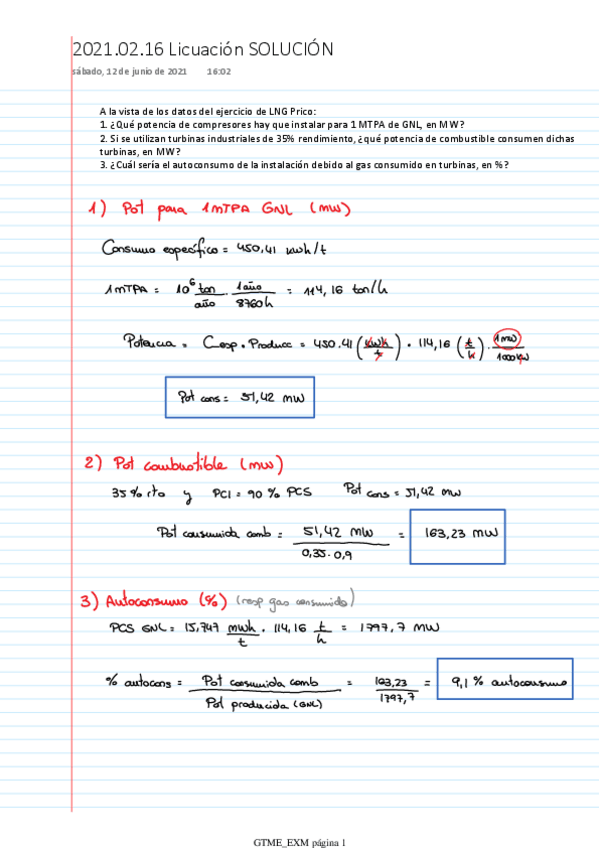 2021.02.16 Licuación SOLUCIÓN
sábado, 12 de junio de 2021 16:02
A la vista de los datos del ejercicio de LNG Prico:
1. ¿Qué potencia de compresores hay que instalar para 1 MTPA de GNL, en MW?
2. Si se utilizan turbinas industriales de 35% rendimiento, ¿qué potencia de combustible consumen dichas
turbinas, en MW?
3. ¿Cuál sería el autoconsumo de la instalación debido al gas consumido en turbinas, en %?
1) Pot para 1MTPA GNL (MW)
Consumo específico = 450,41 kwh/t
1MTPA = 10^6 ton/año · 1año/8760h = 114,16 ton/h
Potencia = Cesp · Producc = 450.41 (kwh/t) · 114,16 (t/h) · 1MW/1000kw
Pot cons = 51,42 MW
2) Pot combustible (MW)
35% rto y PCI = 90 % PCS Pot cons = 51,42 MW
Pot consumida comb = 51,42 MW / 0,35·0,9 = 163,23 MW
3) Autoconsumo (%) (resp gas consumido)
PCS GNL = 15,747 mwh/t · 114,16 t/h = 1797,7 MW
% autocons = Pot consumida comb / Pot producida (GNL) = 163,23 / 1797,7 = 9,1 % autoconsumo
GTME_EXM página 1